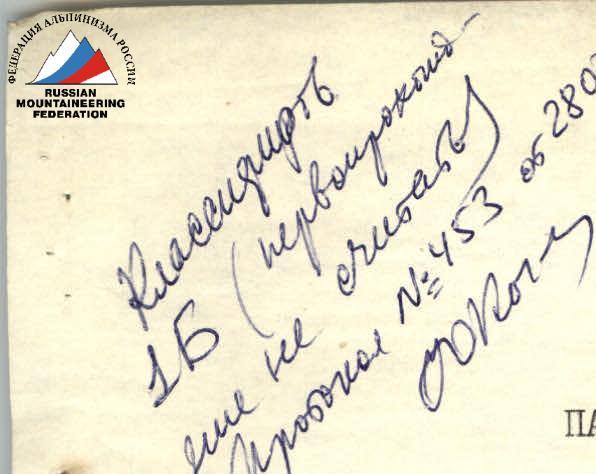 ФЕДЕРАЦИЯ АЛЬПИНИЗМА РОССИИ
RUSSIAN
MOUNTAINEERING
FEDERATION
Классифиц
1Б (первопрохожд-
ение не считать)
Протокол №453 от 280
ПА